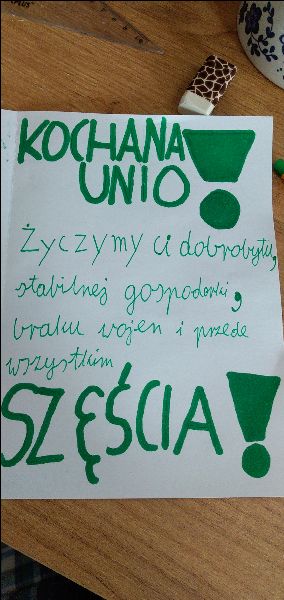 KOCHANA
UNIO!
Życzymy ci dobrobytu,
stabilnej gospodarki,
braku wojen i przede
wszystkim
SZĘŚCIA!